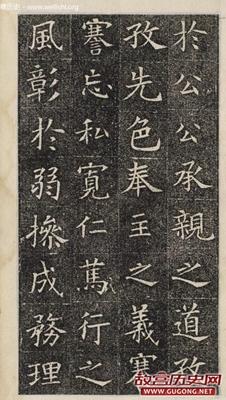 於公公承親之道孜
孜先色奉主之義謇
謇忘私寬仁篤行之
風彰於弱操成務理
www.weilishi.org
故宫历史网
WWW.GUGONG.NET